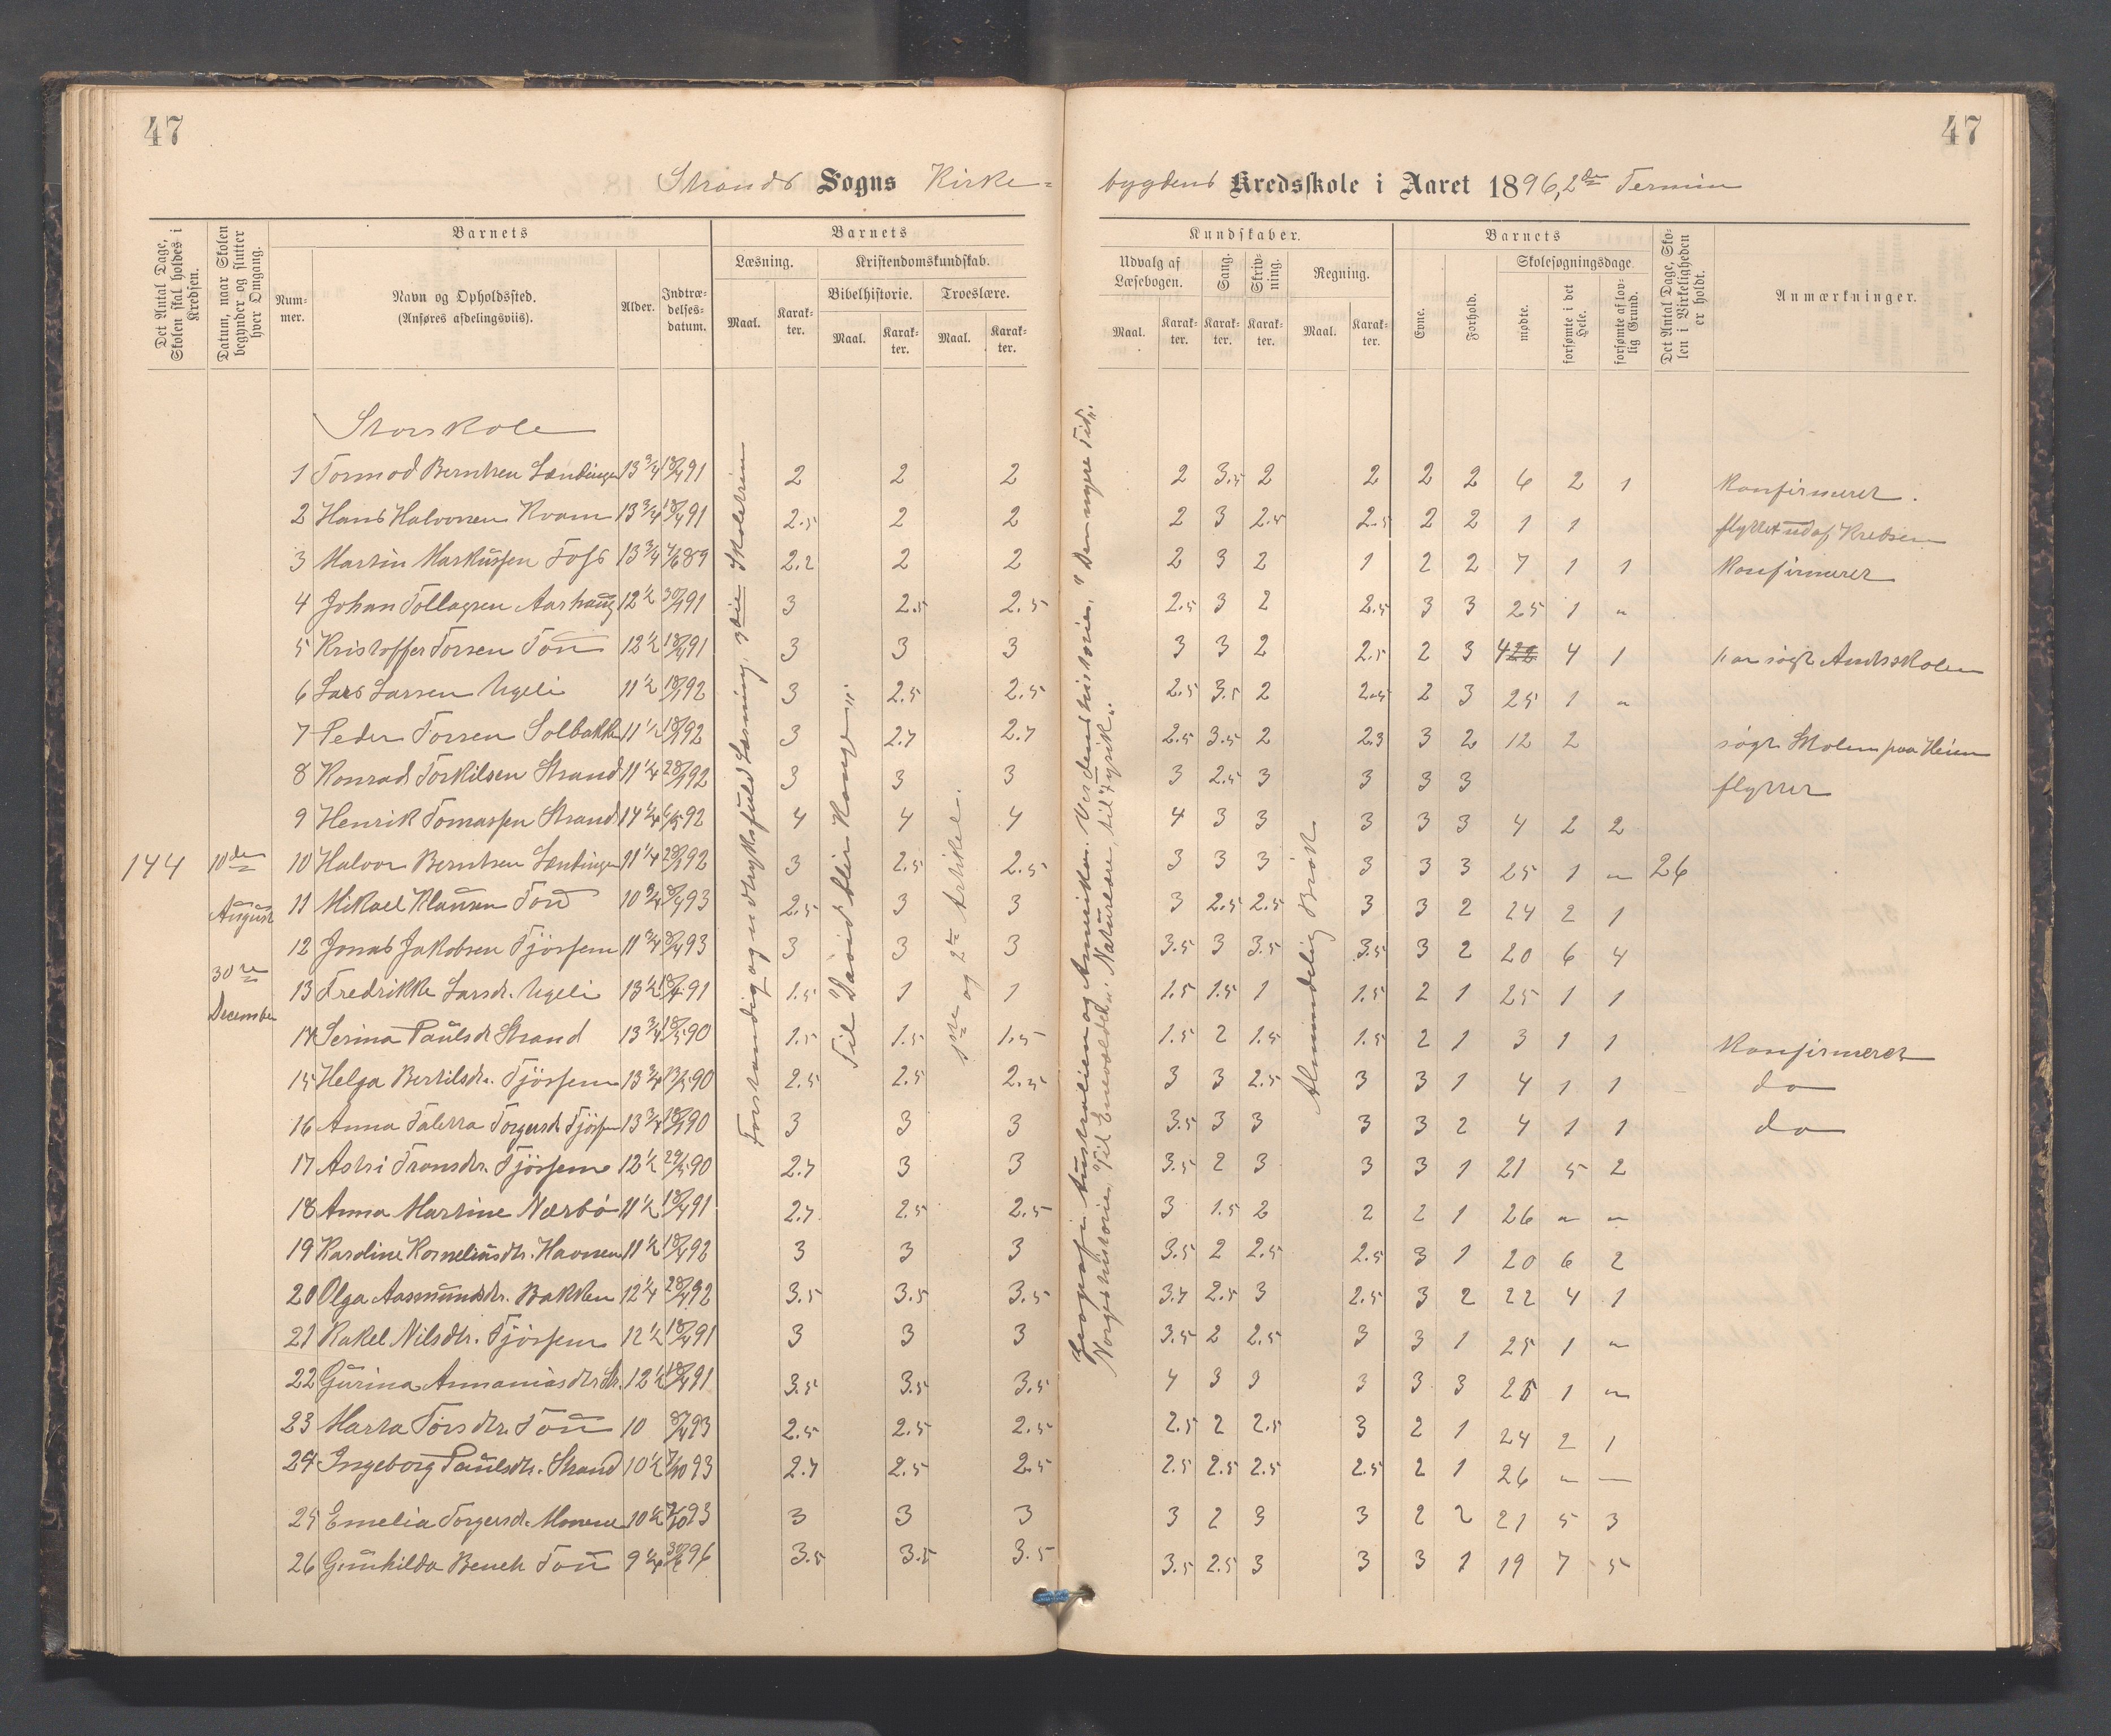 47
47
Strands Sogns Kirke-
bygdens Kredsskole i Aaret 1896, 2den Termin
Det Antal Dage, Skolen skal holdes i Kredsen.
Datum, naar Skolen begynder og slutter hver Omgang.
Barnets
Nummer.
Navn og Opholdssted.
(Anføres afdelingsviis).
Alder.
Indtrædelsesdatum.
Barnets
Læsning.
Maal.
Karakter.
Kristendomskundskab.
Bibelhistorie.
Maal.
Karakter.
Troeslære.
Maal.
Karakter.
Kundskaber.
Udvalg af Læsebogen.
Maal.
Karakter.
Sang.
Karakter.
Skrivning.
Karakter.
Regning.
Maal.
Karakter.
Barnets
Evne.
Forhold.
Skolesøgningsdage
mødte.
forsømte i det Hele.
forsømte af lovlig Grund.
Det Antal Dage, Skolen i Virkeligheden er holdt.
Anmærkninger.
Storskole
144
10de August
30te December
Forstandig og udtryksfuld Læsning, 3die Skoletrin
Til "David blir Konge"
1ste og 2den Artikel.
Geografi: Australien og Amerika. Verdenshistorien, "Den nyere Tid".
Norgeshistorien, "Til Enevoldsk." Naturlære, til "Fysik".
Almindelig Brøk
1 Tormod Berntsen 13 3/4 18/4 91 2 2 2 2 3.5 2 2 2 2 6 2 1 Konfirmeret.
2 Hans Halvorsen Kvam 13 3/4 18/4 91 2.5 2 2 2 3 2.5 2.5 2 2 1 1 flyttet ud af Kredsen
3 Martin Markussen Foss 13 3/4 4/6 89 2.2 2 2 2 3 2 1 2 2 7 1 1 Konfirmeret
4 Johan Tollagsen Aarhaug 12 1/2 30/4 91 3 2.5 2.5 2.5 3 2 2.5 3 3 25 1 "
5 Kristoffer Torsen Tou 12 1/2 18/4 91 3 3 3 3 3 2 2.5 2 3 4 4 1 har søgt Amtsskolen
6 Lars Larsen Ugeli 11 1/2 18/4 92 3 2.5 2.5 2.5 3.5 2 2.5 2 3 25 1 "
7 Peder Torsen Solbakk 11 1/2 18/4 92 3 2.7 2.7 2.5 3.5 2 2.3 3 2 12 2 søgt Skolen paa Heien
8 Konrad Torkilsen Strand 11 1/4 28/4 92 3 3 3 3 2.5 3 3 3 3 flyttet
9 Henrik Tomassen Strand 14 1/4 6/5 92 4 4 4 4 3 3 3 3 3 4 2 2
10 Halvor Berntsen 11 1/4 28/4 92 3 2.5 2.5 3 3 3 3 3 3 25 1 " 26
11 Mikael Klausen Tou 10 3/4 8/4 93 2.5 3 3 3 2.5 2.5 3 3 2 24 2 1
12 Jonas Jakobsen Fjörsem 11 3/4 8/4 93 3 3 3 3.5 3 3.5 3.5 3 2 20 6 4
13 Fredrikke Larsdr. Ugeli 13 1/2 18/4 91 1.5 1 1 1.5 1.5 1 1.5 2 1 25 1 1
14 Serina Paulsdr Strand 13 3/4 18/5 90 1.5 1.5 1.5 1.5 2 1.5 1.5 2 1 3 1 1 Konfirmeret
15 Helga Bertilsdr. Fjörsem 13 3/4 13/5 90 2.5 2.5 2.5 3 3 2.5 3 3 1 4 1 1 do
16 Anna Torgersdr Fjörsem 13 3/4 28/4 90 3 3 3 3.5 3 3 3 3 2 4 1 1 do
17 Astri Transdtr. Fjörsem 12 1/2 29/5 90 2.7 3 3 3.5 2 3 3 3 1 21 5 2
18 Anna Martine Nærbö 11 1/2 18/4 91 2.7 2.5 2.5 3 1.5 2 2 2 1 26 " "
19 Karoline Korneliusdtr. 11 1/2 18/4 92 3 3 3 3.5 2 2.5 2.5 3 1 20 6 2
20 Olga Aasmundsdtr. Bakken 12 1/4 28/4 92 3.5 3.5 3.5 3.7 2.5 3 2.5 3 2 22 4 1
21 Rakel Nilsdtr. Fjörsem 12 1/2 18/4 91 3 3 3 3.5 2 2.5 3 3 1 25 1 "
22 Gurina Annaniasdtr Str. 12 1/2 18/4 91 3.5 3.5 3.5 4 3 3 3 3 3 25 1 "
23 Marta Torsdtr. Tou 10 8/4 93 2.5 2.5 2.5 2.5 2 2.5 3 2 1 24 2 1
24 Ingeborg Paulsdtr. Strand 10 1/2 7/10 93 2.7 2.5 2.5 2.5 2.5 2.5 2.5 2 1 26 " —
25 Emelia Torgersdr. 10 1/2 7/10 93 3 3 3 3 2 3 3 2 2 21 5 3
26 Gunhilda Bench Tou 9 1/4 30/6 96 3.5 3.5 3.5 3.5 2.5 3 3 3 1 19 7 5